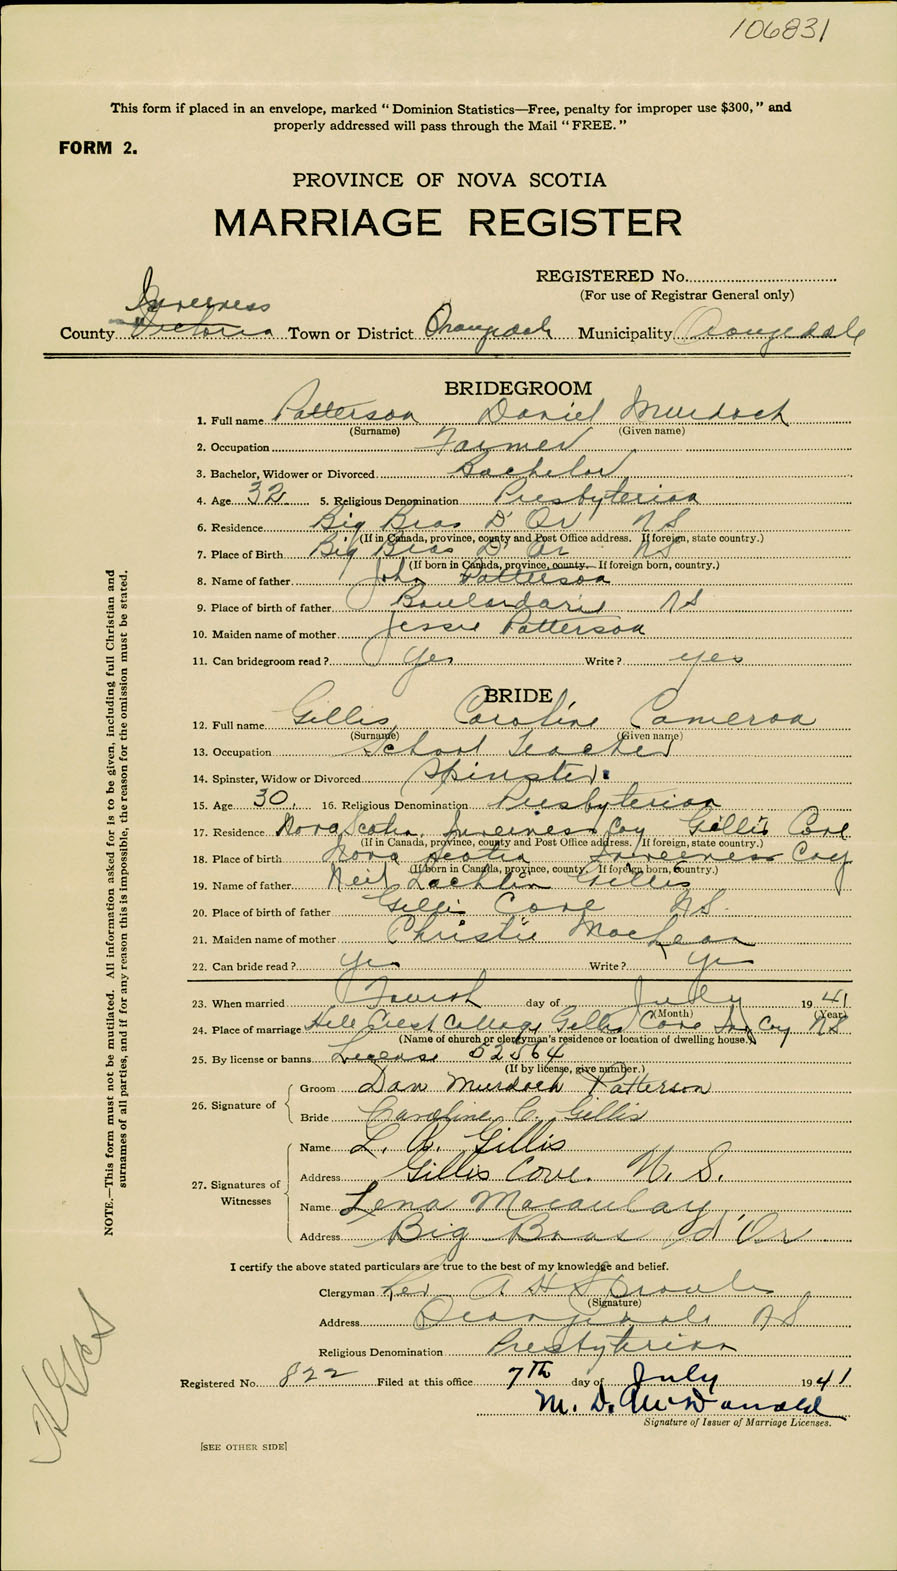 106831
This form if placed in an envelope, marked "Dominion Statistics—Free, penalty for improper use $300," and
properly addressed will pass through the Mail "FREE."
FORM 2.
PROVINCE OF NOVA SCOTIA
MARRIAGE REGISTER
REGISTERED No.
(For use of Registrar General only)
Inverness
County Victoria Town or District Orangedale Municipality Orangedale
BRIDEGROOM
1. Full name Patterson Daniel Murdoch
(Surname) (Given name)
2. Occupation Farmer
3. Bachelor, Widower or Divorced Bachelor
4. Age 32 5. Religious Denomination Presbyterian
6. Residence Big Bras D'Or NS
(If in Canada, province, county and Post Office address. If foreign, state country.)
7. Place of Birth Big Bras D'Or NS
(If born in Canada, province, county. If foreign born, country.)
8. Name of father John Patterson
9. Place of birth of father Boulardarie NS
10. Maiden name of mother Jessie Patterson
11. Can bridegroom read? Yes Write? yes
BRIDE
12. Full name Gillis Caroline Cameron
(Surname) (Given name)
13. Occupation School Teacher
14. Spinster, Widow or Divorced Spinster.
15. Age 30. 16. Religious Denomination Presbyterian
17. Residence Nova Scotia, Inverness Coy Gillis Cove
(If in Canada, province, county and Post Office address. If foreign, state country.)
18. Place of birth Nova Scotia Inverness Coy
(If born in Canada, province, county. If foreign born, country.)
19. Name of father Neil Lachlin Gillis
20. Place of birth of father Gillis Cove NS.
21. Maiden name of mother Christie MacLean
22. Can bride read? Yes Write? Yes
23. When married Fourth day of July 1941
(Month) (Year)
24. Place of marriage Hill Crest Cottage Gillis Cove Inv Coy NS
(Name of church or clergyman's residence or location of dwelling house.)
25. By license or banns License 52564
(If by license, give number.)
26. Signature of Groom Dan Murdoch Patterson
Bride Caroline C. Gillis
27. Signatures of Witnesses Name L. A. Gillis
Address Gillis Cove. N. S.
Name Lena Macaulay
Address Big Bras d'Or
I certify the above stated particulars are true to the best of my knowledge and belief.
Clergyman Rev A H Sproule
(Signature)
Address Orangedale NS
Religious Denomination Presbyterian
Registered No. 822 Filed at this office 7TH day of July 1941
M. D. McDonald
Signature of Issuer of Marriage Licenses.
[SEE OTHER SIDE]
NOTE.—This form must not be mutilated. All information asked for is to be given, including full Christian and
surnames of all parties, and if for any reason this is impossible, the reason for the omission must be stated.